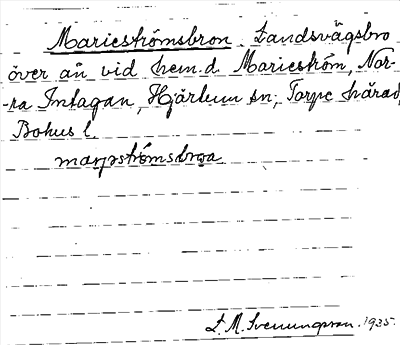 Marieströmsbron. Landsvägsbro
över ån vid hem.d. Marieström, Nor-
-ra Intagan, Hjärtum sn, Torpe härad,
Bohus l.
marjströmsbroa
L. M. Svenungsson. 1935.